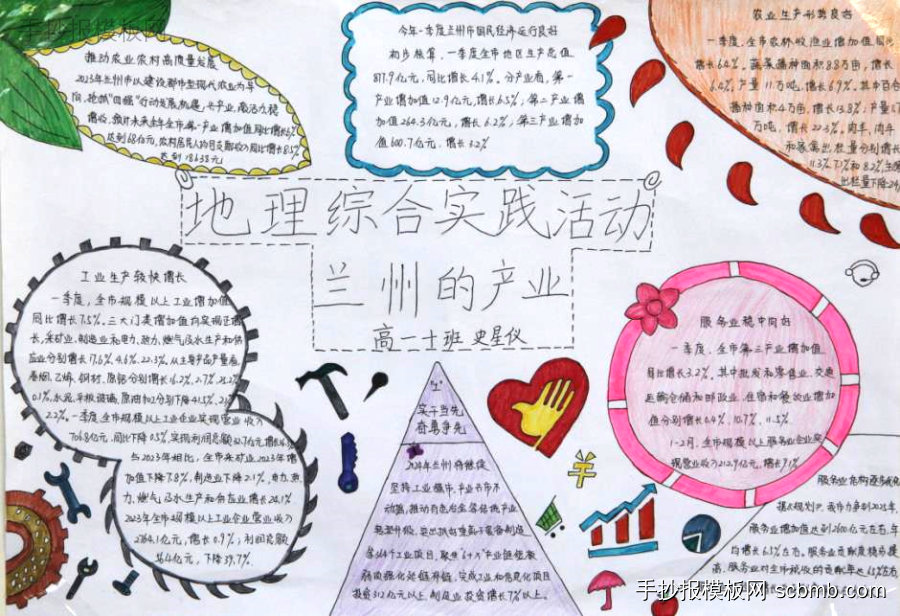 手抄报模板网
推动农业农村高质量发展
2023年兰州市以建设都市型现代农业为导
达到68亿元,农村居民人均可支配收入同比增长8.5%
达到18638元
今年一季度兰州市国民经济运行良好
初步核算,一季度全市地区生产总值
817.9亿元,同比增长4.1%。分产业看,第一
产业增加值12.9亿元,增长6.5%;第二产业增
加值264.3亿元,增长6.2%;第三产业增加
值600.7亿元,增长3.2%
农业生产形势良好
一季度,全市农林牧渔业增加值同比
增长6.4%。蔬菜播种面积8.8万亩,增长
6.4%,产量11万吨,增长6.9%,其中百合
播种面积4万亩,增长13.8%;产量1.
万吨,增长22.3%,肉羊,肉牛
和家禽出栏量分别增长
11.3%,7.1%和8.2%,生猪
出栏量下降2
地理综合实践活动
兰州的产业
高一十班 史星仪
工业生产较快增长
一季度,全市规模以上工业增加值
同比增长7.5%。三大门类增加值均实现正增
长,采矿业,制造业和电力、热力、燃气及水生产和供
应业分别增长17.6%,4.6%,22.3%,从主导产品产量看,
卷烟,乙烯,钢材,原铝分别增长16.2%,2.7%,21.2%
0.1%,水泥,平板玻璃,原油加工分别下降41.5%,21.2%
2.2%。一季度,全市规模以上工业企业实现营业收入
706.8亿元,同比下降0.5%,实现利润总额42.7亿元,增长
与2023年相比,全市采矿业2023年增
加值下降7.8%,制造业下降2.1%,电力、热
力、燃气及水生产和供应业增长24.1%
2023年全市规模以上工业企业营业收入
2764.1亿元,增长0.9%;利润总额
亿元,下降39.7%.
实干当先
奋勇争先
2024年兰州将继续
坚持工业强市,产业兴市不
动摇,推动有色冶金等传统产业
转型升级,突出抓好
564个工业项目,聚焦"6+X"产业链继续
延链补链,完成工业和信息化项目
投资312亿元以上,制造业投资增长7%以上。
服务业稳中向好
一季度,全市第三产业增加值
同比增长3.2%。其中批发和零售业、交通
运输仓储和邮政业、住宿和餐饮业增加
值分别增长6.4%、10.7%、11.5%
1-2月,全市规模以上服务业企业实
现营业收入212.9亿元,增长9.1%
服务业结构逐步优化
据规划,我市力争到2025年,
服务业增加值达到2600亿元左右,年
均增长6.5%左右,服务业贡献度稳步提
高,服务业对全市税收的贡献率达65%左右
手抄报模板网 scbmb.com